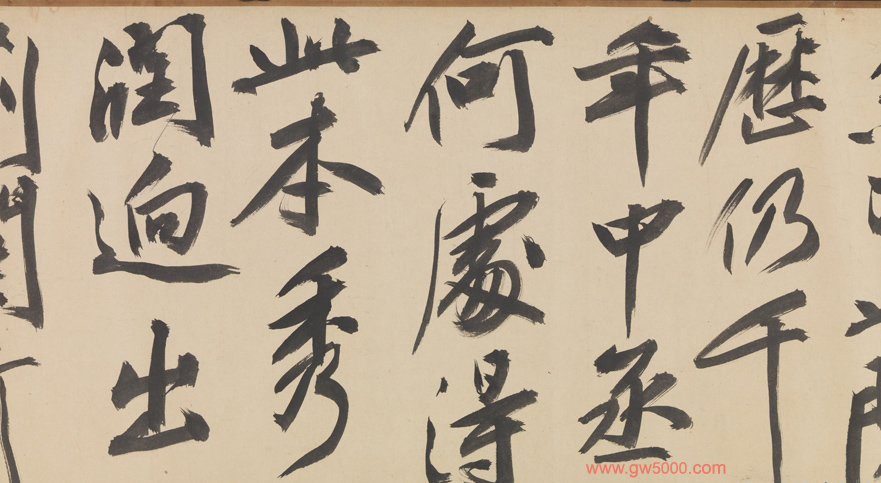 歷仍千
年中丞
何處得
此本秀
潤迥出
www.gw5000.com